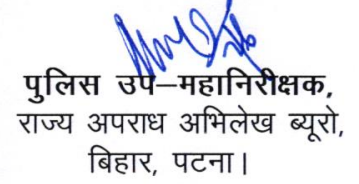 पुलिस उप–महानिरीक्षक,
राज्य अपराध अभिलेख ब्यूरो,
बिहार, पटना।